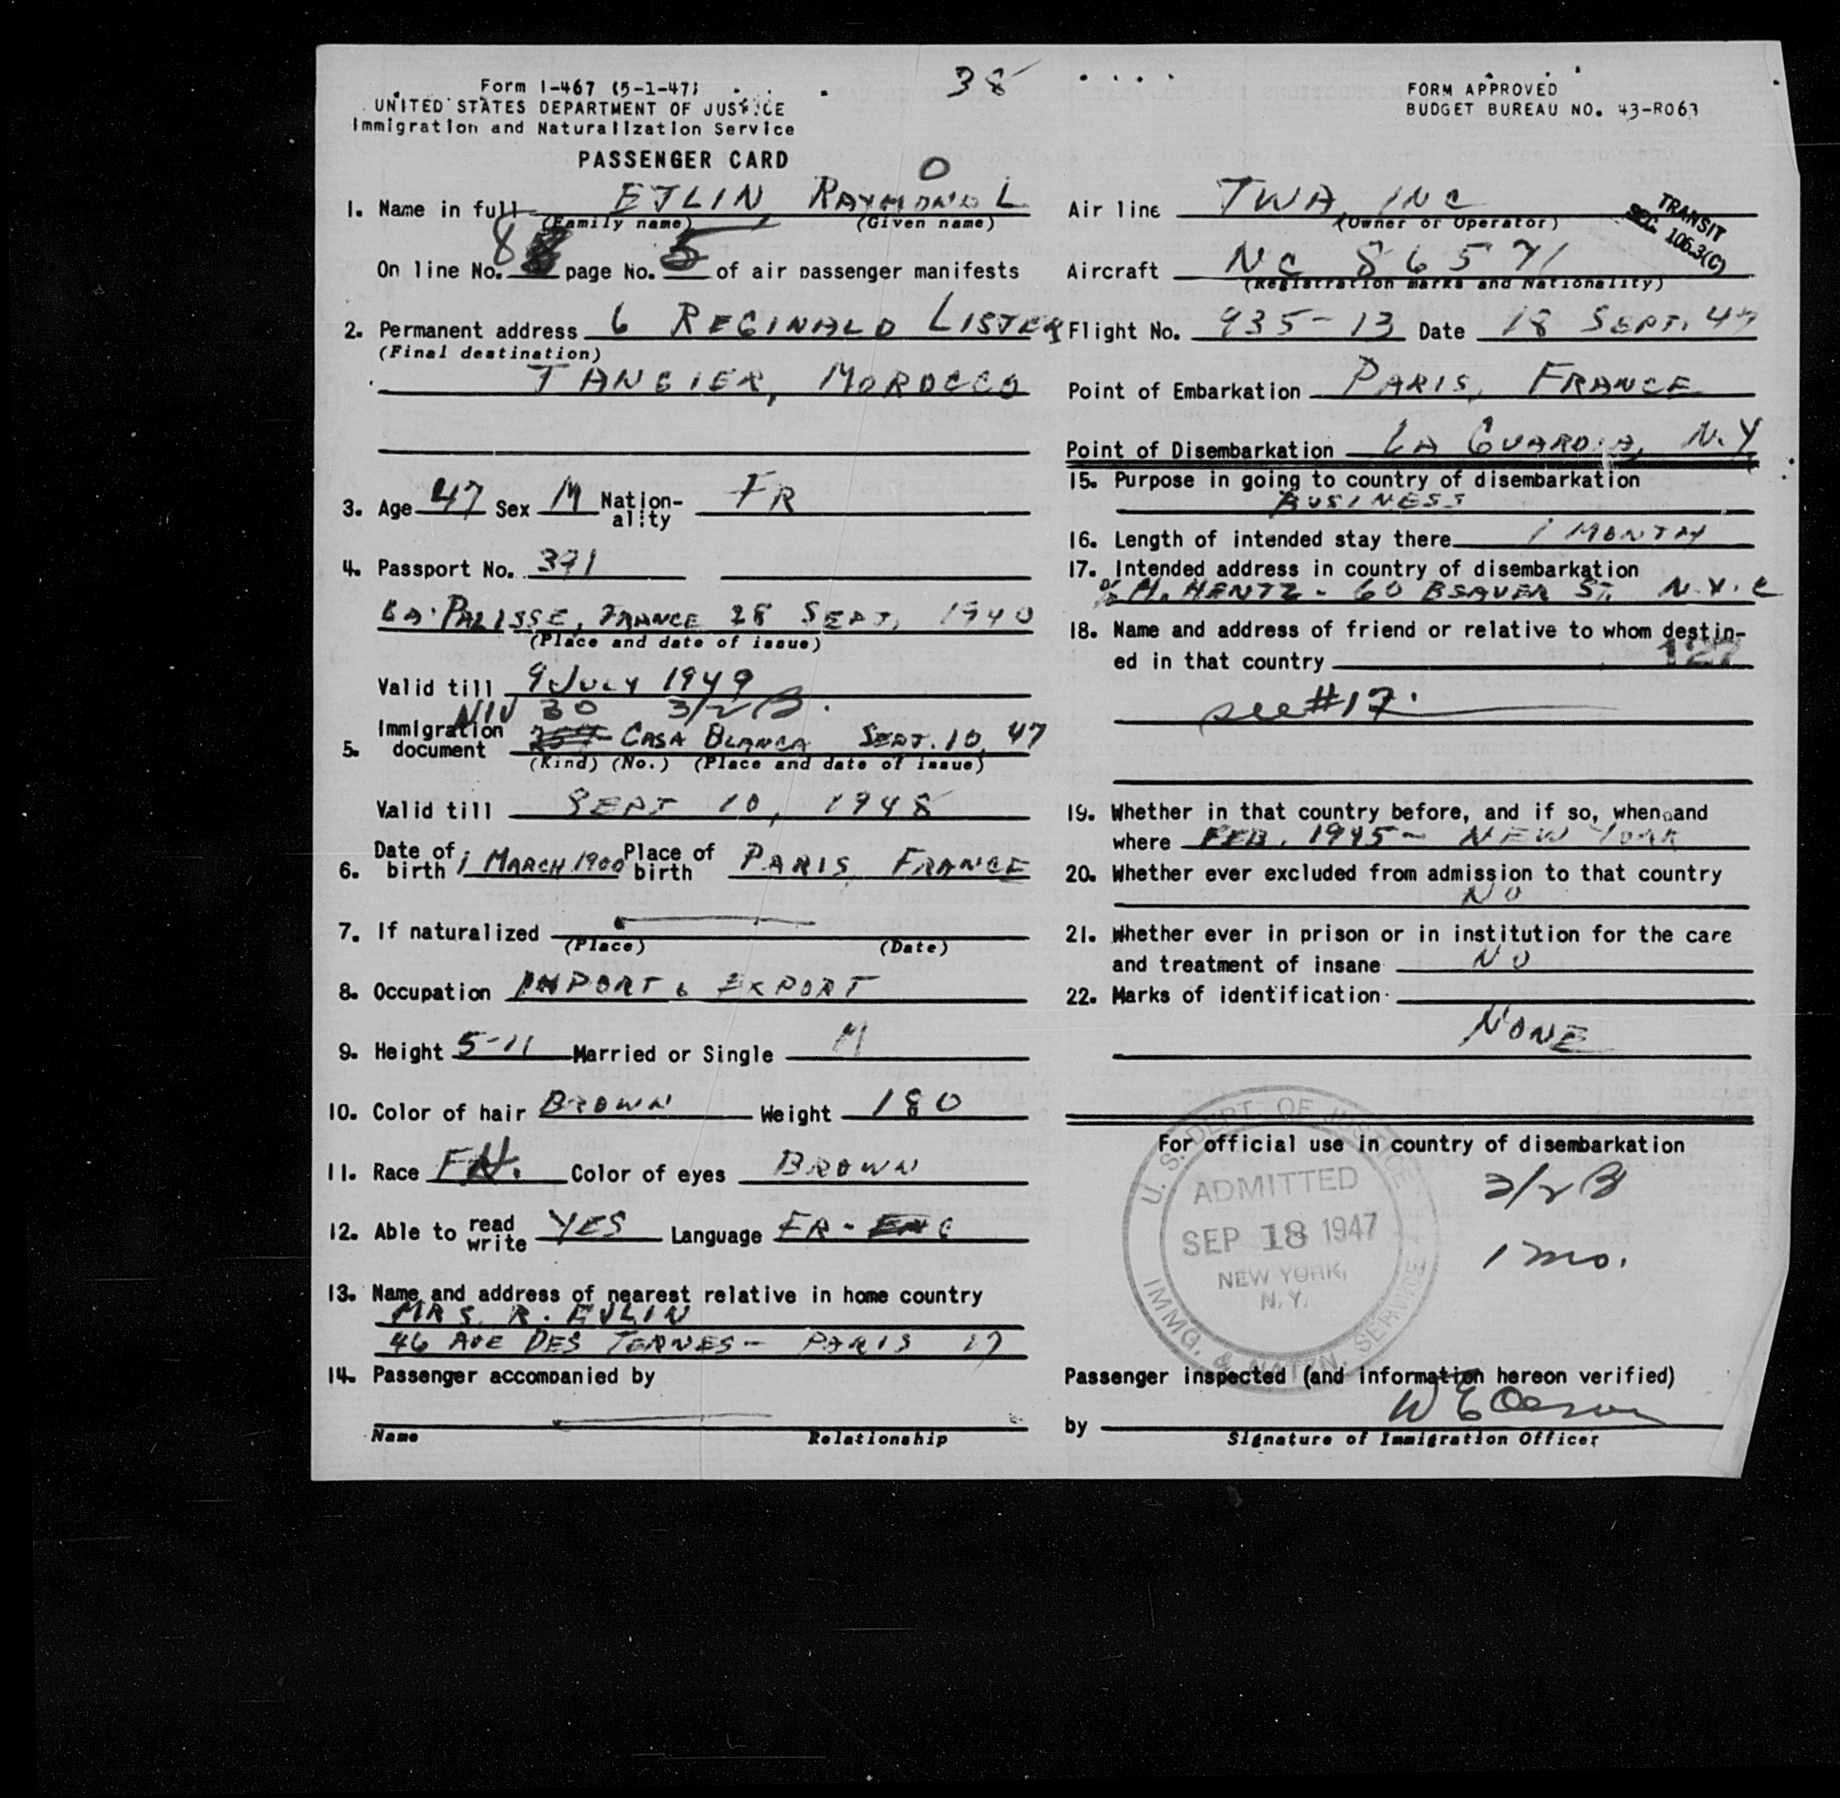 38
Form I-467 (5-1-47)
UNITED STATES DEPARTMENT OF JUSTICE
Immigration and Naturalization Service
PASSENGER CARD
FORM APPROVED
BUDGET BUREAU NO. 43-R063
O
1. Name in full EJLIN RAYMOND L
(Family name) (Given name)
On line No. 8 page No. 5 of air passenger manifests
2. Permanent address 6 REGINALD LISTER
(Final destination)
TANGIER, MOROCCO
3. Age 47 Sex M Nation-ality FR
4. Passport No. 371
LA PALISSE, FRANCE 28 SEPT, 1940
(Place and date of issue)
Valid till 9 JULY 1949
NIV 30 3/2 B
5. Immigration document CASA BLANCA SEPT. 10, 47
(Kind) (No.) (Place and date of issue)
Valid till SEPT 10, 1948
6. Date of birth 1 MARCH 1900 Place of birth PARIS, FRANCE
7. If naturalized
(Place) (Date)
8. Occupation IMPORT & EXPORT
9. Height 5-11 Married or Single M
10. Color of hair BROWN Weight 180
11. Race Color of eyes BROWN
12. Able to read write YES Language FR - ENG
13. Name and address of nearest relative in home country
MRS. R. EJLIN
46 AVE DES TERNES - PARIS 17
14. Passenger accompanied by
Name Relationship
Air line TWA, INC
(Owner or Operator)
TRANSIT
SEC. 106.3(C)
Aircraft NC 86571
(Registration marks and Nationality)
Flight No. 935-13 Date 18 SEPT. 47
Point of Embarkation PARIS, FRANCE
Point of Disembarkation LA GUARDIA, N.Y.
15. Purpose in going to country of disembarkation
BUSINESS
16. Length of intended stay there 1 MONTH
17. Intended address in country of disembarkation
c/o H. HENTZ - 60 BEAVER ST. N.Y.C
18. Name and address of friend or relative to whom destin-
ed in that country 127
see #17.
19. Whether in that country before, and if so, when and
where FEB. 1945 - NEW YORK
20. Whether ever excluded from admission to that country
NO
21. Whether ever in prison or in institution for the care
and treatment of insane NO
22. Marks of identification
NONE
For official use in country of disembarkation
U. S. DEPT. OF JUSTICE
ADMITTED
SEP 18 1947
NEW YORK,
N.Y.
IMMG. & NATZN. SERVICE
3/2 B
1 mo.
Passenger inspected (and information hereon verified)
by
Signature of Immigration Officer